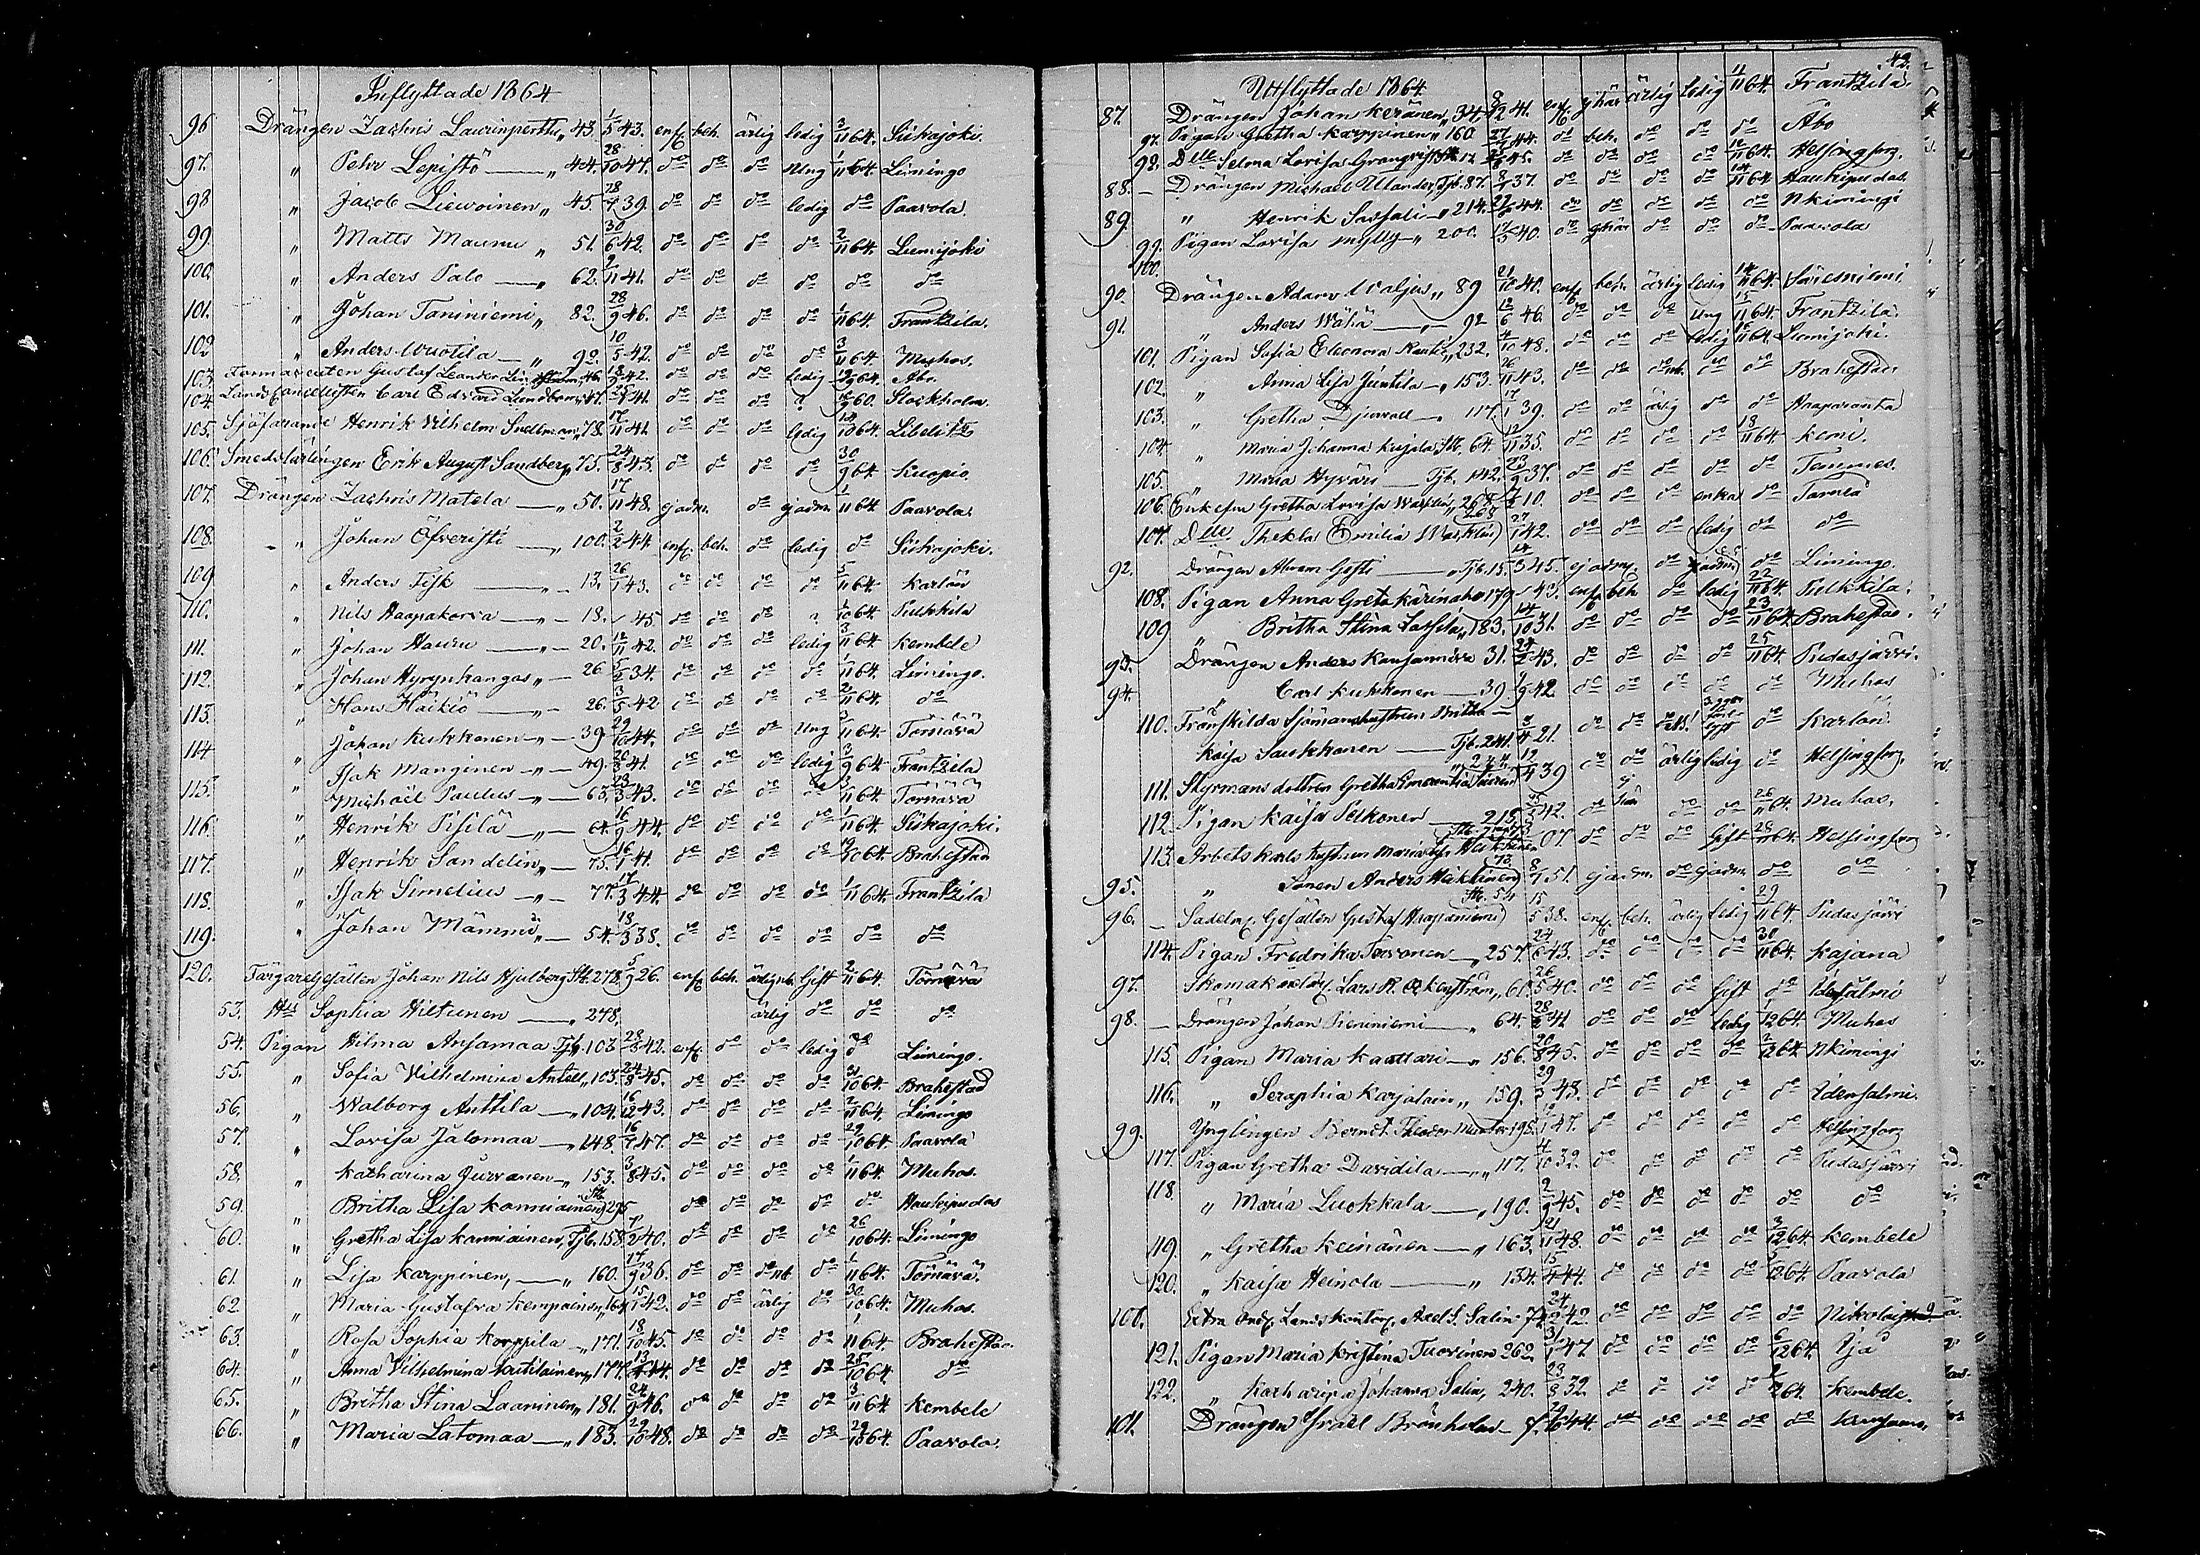 Inflyttade 1864
96. Drängen Zachris Laurinperttu „ 43. 1/5 43. enf. beh. ärlig ledig 2/11 64. Siikajoki.
97. „ Pehr Lepistö — „ 44. 28/10 47. do do do Ung 1/11 64. Limingo
98 „ Jacob Liewoinen „ 45. 28/7 39. do do do ledig do Paavola.
99. „ Matts Maunu „ 51. 30/6 42. do do do do 2/11 64. Lumijoki
100. „ Anders Palo — „ 62. 2/11 41. do do do do do do
101. „ Johan Taniniemi „ 82. 28/9 46. do do do do 1/11 64. Frantzila.
102 „ Anders Wuotila — „ 92. 10/5 42. do do do do 3/11 64 Muhos.
103. Gustaf Leander 46. 18/9 42. do do do ledig 19/9 64. Åbo.
104. Landscancellisten Carl Edvard Lundbom „ 47. 41. do do do ? 60. Stockholm.
105. Sjöfarande Henrik Vilhelm Snellman „ 78. 17/11 41. do do do ledig 10 64. Libelits
106. Smedslärlingen Erik August Sandberg „ 75. 24/8 43. do do do do 30/9 64 Kuopio.
107. Drängen Zachris Matela — „ 50. 17/11 48. ej adm. do ej adm. 1/11 64 Paavola.
108. „ Johan Öfveristi — „ 100. 2/2 44. enf. beh. do ledig do Siikajoki.
109 „ Anders Fisk — „ 13. 26/1 43. do do do do 5/11 64. Karlön
110. „ Nils Haapakorva — „ 18. 45. do do do ? 1/10 64. Pulkkila
111. „ Johan Hauru — „ 20. 12/11 42. do do do ledig 3/11 64 Kembele
112. „ Johan Hyrynkangas „ 26 5/2 34. do do do do 1/11 64. Limingo.
113. „ Hans Häikiö — „ 26. 3/5 42 do do do do 2/11 64. do
114 „ Johan Kukkonen — „ 39 29/10 44. do do do Ung 2/11 64. Tornävä
„ Isak Manginen — „ 49. 20/8 41 do do do ledig 3/9 64 Frantzila
115. „ Michaël Paulus — „ 63. 23/3 43. do do do do 2/11 64 Tornävä
116. „ Henrik Pisilä — „ 64. 16/9 44. do do do do 1/11 64. Siikajoki.
117. „ Henrik Sandelin „ — 75. 16/1 41. do do do do 19/10 64. Brahestad
118. „ Isak Simelius — „ 77. 17/3 44. do do do do 1/11 64 Frantzila
119. „ Johan Mämmi „ — 54. 18/3 38. do do do do do do
120. Färgaregesällen Johan Nils Hjulberg Stb. 278. 5/9 26. enf. beh. ärlig nb. Gift 2/11 64 Tornävä
53. Hus Sophia Hiltunen — „ 278. ärlig do do do
54. Pigan Hilma Ansamaa Tjb. 103 28/3 42. enf. do do ledig do Limingo.
55. „ Sofia Vilhelmina Antell „ 103. 24/8 45. do do do do 31/10 64. Brahestad
56. „ Walborg Anttila — „ 104. 16/12 43. do do do do 2/11 64. Limingo
57. „ Lovisa Jalomaa — „ 148. 16/7 47. do do do do 29/10 64. Paavola
58. „ Katharina Jurvanen „ 153. 3/8 45. do do do do 1/11 64. Muhos.
59. „ Britha Lisa Kanniainen Stb. 295 do do do do do Haukipudas
60. „ Gretha Lisa Kanniainen, Tjb. 158. 7/2 40. do do do do 26/10 64. Limingo
61. „ Lisa Karppinen, — „ 160. 17/9 36. do do do nb. do 1/11 64. Tornävä.
62 „ Maria Gustafva Kempainen „ 164. 15/1 42. do do ärlig do 30/10 64. Muhos.
63. „ Rosa Sophia Korppila — „ 171. 18/10 45. do do do do 1/11 64. Brahestad
64. „ Anna Vilhelmina Kutilainen „ 177. 13/4 44. do do do do 25/10 64. do
65. „ Britha Stina Laaninen „ 181. 24/9 46. do do do do 3/11 64 Kembele
66. „ Maria Latomaa — „ 183. 29/10 48. do do do do 29/10 64. Paavola.
42.
Utflyttade 1864
87. Drängen Johan Keränen „ 34. 8/12 41. enf. g. här ärlig ledig 11/11 64. Frantzila
97. Pigan Gretha Karppinen „ 160. 27/11 44. do beh. do do do Åbo
98. Dlle Selma Lovisa Granqvist 45. do do do do 12/11 64. Helsingfors.
88. — Drängen Michael Ulander Tjb. 87. 8/1 37. do do do do 14/11 64. Haukipudas.
89. „ Henrik Sassali — „ 214. 44. do do do do do Nkimingi
99. Pigan Lovisa Mylly — „ 200. 17/3 40. do g. här do do do Paavola
100.
90. Drängen Adam Waljus „ 89 21/10 40. enf. beh. ärlig ledig 14/11 64. Säresniemi
91. „ Anders Wähä — „ 92 12/6 46. do do do Ung 15/11 64. Frantzila.
101. Pigan Sofia Eleonora „ 232. 4/10 48. do do do ledig 15/11 64. Lumijoki.
102. „ Anna Lisa Juntila — „ 153. 26/11 43. do do do nb. do do Brahestad.
103. „ Gretha Djurvall — „ 117. 17/1 39. do do ärlig do do Haaparanta
104. „ Maria Johanna Kujala Stb. 64. 12/11 35. do do do do 18/11 64. Kemi.
105. „ Maria Hyväri — Tjb. 142. 23/9 37. do do do do do Tammes.
106. Enkefru Gretha Lovisa Wacklin „ 268 10. do do do enka do Torneå
107. Dlle Thekla Emilia Wacklin 268 27/1 42. do do do ledig do do
92. Drängen Abram Gests — Tjb. 15. 14/3 45. ej adm. do ej adm. do Limingo.
108. Pigan Anna Greta Kärinaho 179 43. enf. beh. do ledig 22/11 64. Pulkkila.
109 „ Britha Stina Lassila „ 183. 14/10 31. do do do do 23/11 64. Brahestad.
93. Drängen Anders Kansanniva 31. 24/2 43. do do do do 25/11 64. Pudasjärvi.
94. „ Carl Kukkonen — 39 1/9 42. do do do do do Muhos
110. Frånskilda Sjömanshustrun Britha
Kaisa Saukkonen — Tjb. 241. 3/4 21. do do do nb. do Karlön.
111. Styrmans dottren Gretha 12/4 39 do do ärlig ledig do Helsingfors,
112. Pigan Kaisa Pelkonen — 215 42. do g. här do do 26/11 64. Muhos,
113. Arbetskarls hustrun Maria Heikkinen 07. do do do Gift 28/11 64. Helsingfors
95. „ Sonen Anders Heikkinen 8/7 51. ej adm. do ej adm. do do
96. — Sadelm. Gesällen Gustaf Haapaniemi Stb. 54 15/5 38. enf. beh. ärlig ledig 29/11 64. Pudasjärvi
114. Pigan Fredrika Torvonen — „ 257. 24/6 43. do do do do 30/11 64. Kajana
97. Skomakarelär. Lars R. Åkerström „ 61. 26/5 40. do do do Gift do Idensalmi
98. — Drängen Johan Pieniniemi — „ 64. 28/2 41 do do do ledig 1/12 64. Muhos
115. Pigan Maria Kaattari — „ 156. 20/8 45. do do do do 2/12 64. Nkimingi
116. „ Seraphia Karjalain „ 159. 29/3 48. do do do do do Idensalmi.
99. Ynglingen Bernet Theodor Munter 198. 47. do do do do do Helsingfors
117. Pigan Gretha Davidila — „ 117. 4/10 32. do do do do do Pudasjärvi
118. „ Maria Luokkala — „ 190. 2/9 45. do do do do do do
119. „ Gretha Keinänen — „ 163. 21/11 48. do do do do 3/12 64. Kembele
120. „ Kaisa Heinola — „ 134. 15/4 44. do do do do 5/12 64. Paavola
100. Extra Ord. Landskontor. Axel S. Salin 24/9 42. do do do do do Nikolaistad
121. Pigan Maria Kristina Tuovinen 262. 31/1 47 do do do do 6/12 64. Ijå
122. „ Katharina Johanna Salin, 240. 23/8 32. do do do do 64. Kembele.
101. Drängen Israel Brönholm 44. do do do do do Kuusamo.